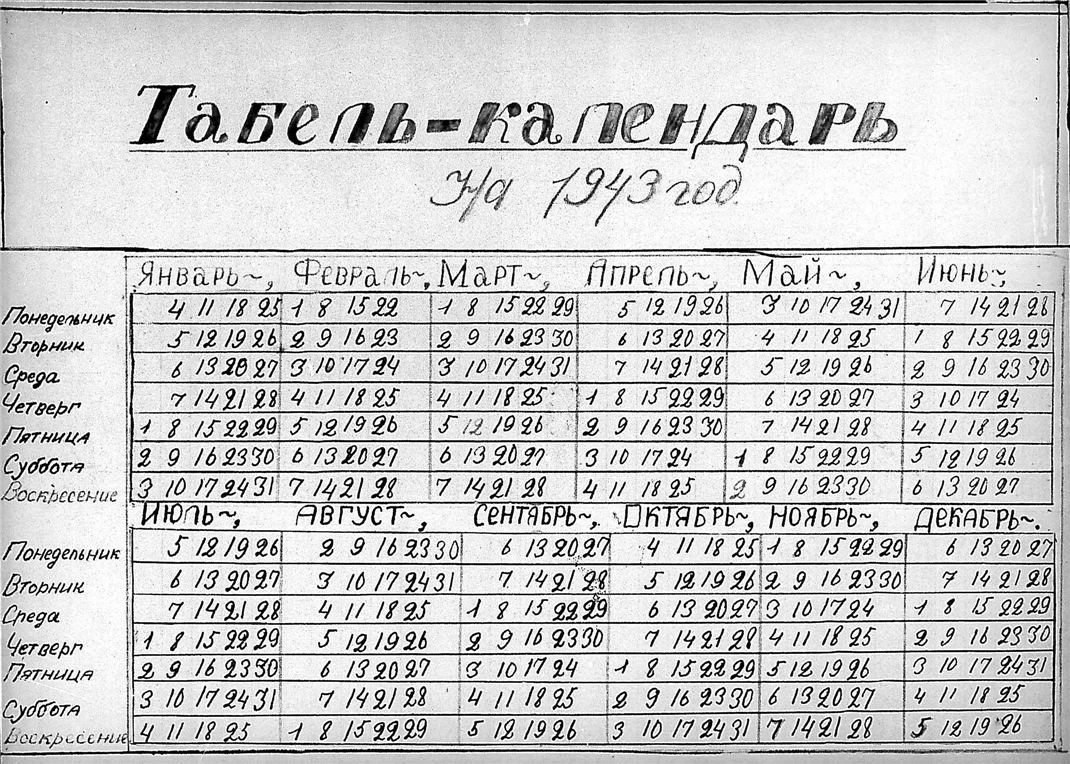 Табель-календарь
на 1943 год
Январь~, Февраль~, Март~, Апрель~, Май~, Июнь~,
Понедельник 4 11 18 25 1 8 15 22 1 8 15 22 29 5 12 19 26 3 10 17 24 31 7 14 21 28
Вторник 5 12 19 26 2 9 16 23 2 9 16 23 30 6 13 20 27 4 11 18 25 1 8 15 22 29
Среда 6 13 20 27 3 10 17 24 3 10 17 24 31 7 14 21 28 5 12 19 26 2 9 16 23 30
Четверг 7 14 21 28 4 11 18 25 4 11 18 25 1 8 15 22 29 6 13 20 27 3 10 17 24
Пятница 1 8 15 22 29 5 12 19 26 5 12 19 26 2 9 16 23 30 7 14 21 28 4 11 18 25
Суббота 2 9 16 23 30 6 13 20 27 6 13 20 27 3 10 17 24 1 8 15 22 29 5 12 19 26
Воскресение 3 10 17 24 31 7 14 21 28 7 14 21 28 4 11 18 25 2 9 16 23 30 6 13 20 27
Июль~, Август~, Сентябрь~, Октябрь~, Ноябрь~, Декабрь~.
Понедельник 5 12 19 26 2 9 16 23 30 6 13 20 27 4 11 18 25 1 8 15 22 29 6 13 20 27
Вторник 6 13 20 27 3 10 17 24 31 7 14 21 28 5 12 19 26 2 9 16 23 30 7 14 21 28
Среда 7 14 21 28 4 11 18 25 1 8 15 22 29 6 13 20 27 3 10 17 24 1 8 15 22 29
Четверг 1 8 15 22 29 5 12 19 26 2 9 16 23 30 7 14 21 28 4 11 18 25 2 9 16 23 30
Пятница 2 9 16 23 30 6 13 20 27 3 10 17 24 1 8 15 22 29 5 12 19 26 3 10 17 24 31
Суббота 3 10 17 24 31 7 14 21 28 4 11 18 25 2 9 16 23 30 6 13 20 27 4 11 18 25
Воскресение 4 11 18 25 1 8 15 22 29 5 12 19 26 3 10 17 24 31 7 14 21 28 5 12 19 26